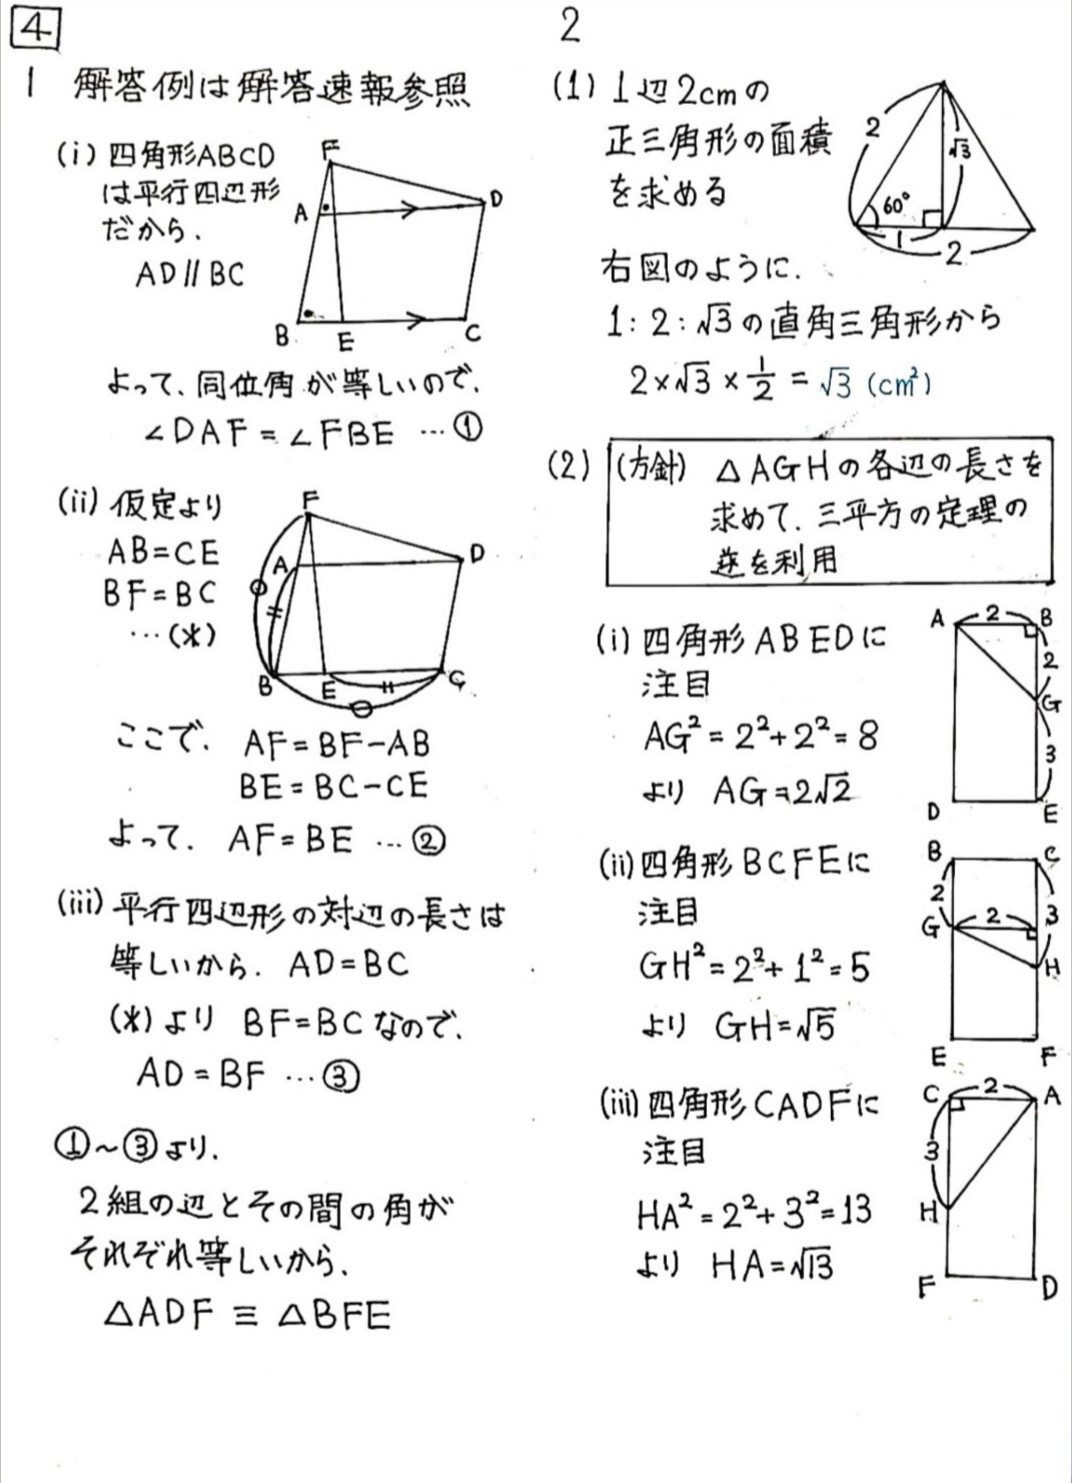 4
1 解答例は解答速報参照
(i) 四角形ABCD
は平行四辺形
だから.
AD∥BC
F
A
D
B
E
C
よって、同位角が等しいので、
∠DAF=∠FBE …①
(ii) 仮定より
AB=CE
BF=BC
…(*)
F
A
D
B
E
C
ここで、AF=BF-AB
BE=BC-CE
よって、AF=BE …②
(iii) 平行四辺形の対辺の長さは
等しいから. AD=BC
(*)より BF=BCなので、
AD=BF …③
①～③より.
2組の辺とその間の角が
それぞれ等しいから、
△ADF≡△BFE
2
(1) 1辺2cmの
正三角形の面積
を求める
2
√3
60°
1
2
右図のように.
1:2:√3の直角三角形から
2×√3×1/2=√3 (cm²)
(2) (方針) △AGHの各辺の長さを
求めて、三平方の定理の
逆を利用
(i) 四角形ABEDに
注目
AG²=2²+2²=8
より AG=2√2
A 2 B
2
G
3
D E
(ii) 四角形BCFEに
注目
GH²=2²+1²=5
より GH=√5
B C
2
G 2 3
H
E F
(iii) 四角形CADFに
注目
HA²=2²+3²=13
より HA=√13
C 2 A
3
H
F D